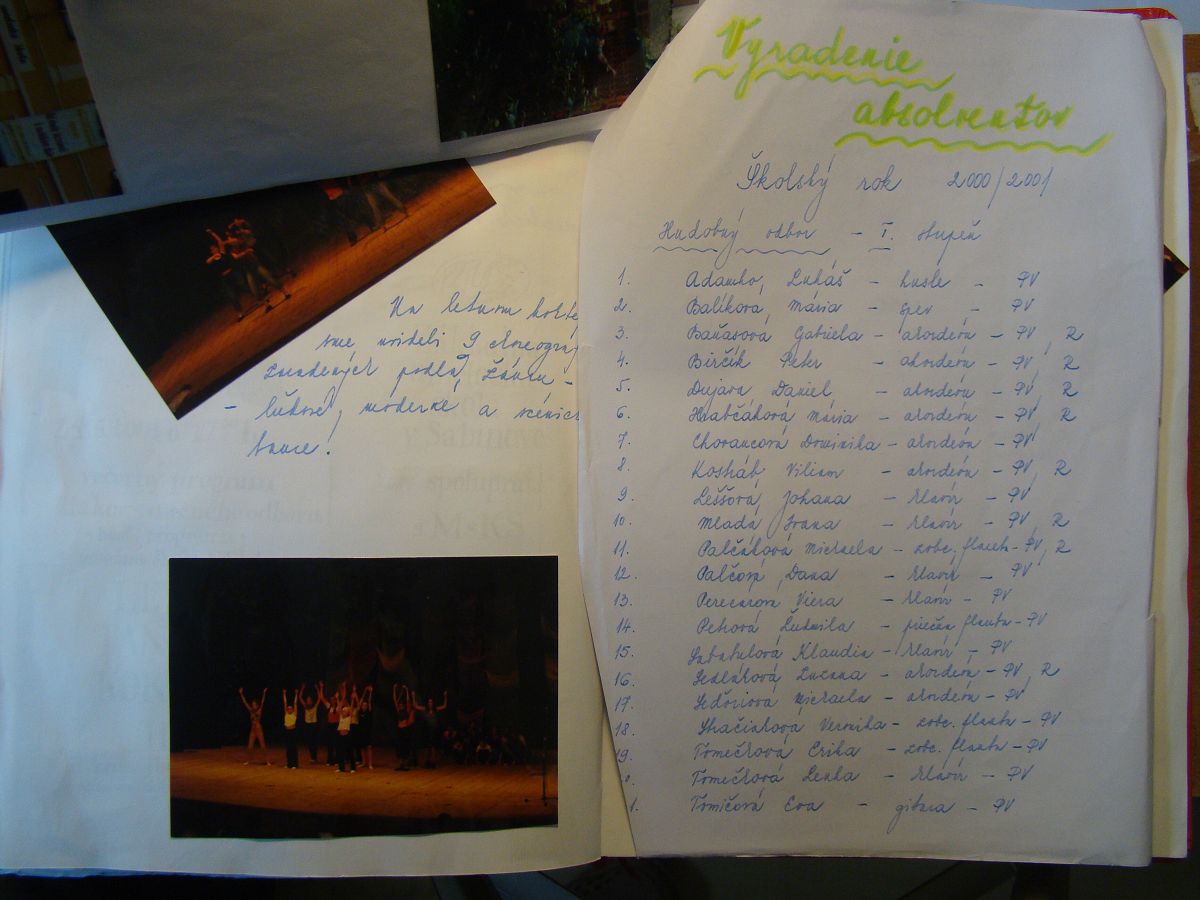 Na letnom
sme videli 9 choreogra
ľudové, moderné a scénick
tance!
Vyradenie
absolventov
Školský rok 2000/2001
Hudobný odbor - I. stupeň
1. Adamko, Lukáš - husle - PV
2. Balíková, Mária - spev - PV
3. Baňasová Gabriela - akordeón - PV, R
4. Birčík Peter - akordeón - PV, R
5. Dujava Daniel - akordeón - PV, R
6. Hrabčáková Mária - akordeón - PV, R
7. Chovancová Dominika - akordeón - PV
8. Kostráb Viliam - akordeón - PV, R
9. Leššová Johana - klavír - PV
10. Mladá Ivana - klavír - PV, R
11. Palčáková Michaela - zobc. flauta - PV, R
12. Palčová, Dana - klavír - PV
13. Viera - klavír - PV
14. Petrová Ľudmila - priečna flauta - PV
15. Klaudia - klavír - PV
16. Sedláková Zuzana - akordeón - PV, R
17. Michaela - akordeón - PV
18. Veronika - zobc. flauta - PV
19. Tomečková Erika - zobc. flauta - PV
Tomečková Lenka - klavír - PV
1. Tomičová Eva - gitara - PV